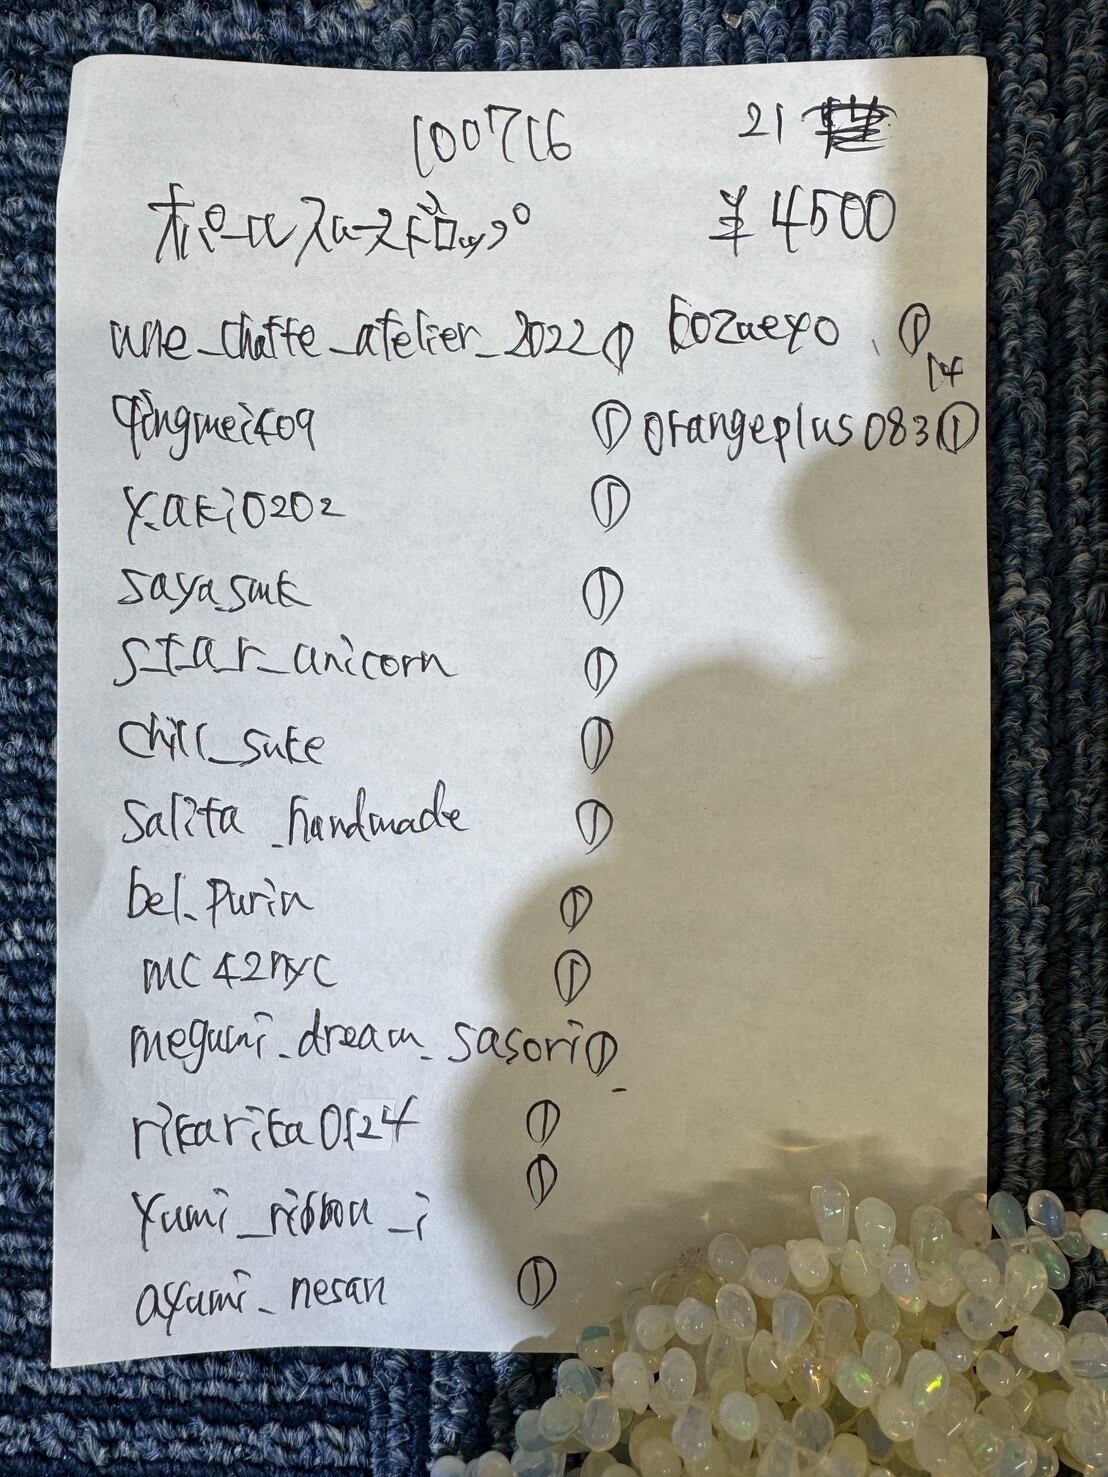 100716
21
オパールスムースドロップ
¥4500
une_chatte_atelier_2022 ①
qingmei409 ①
y.aki0202 ①
sayasuk ①
s_t_a_r_unicorn ①
chill_suke ①
salita_handmade ①
bel.purin ①
mc42nyc ①
megumi_dream_sasori ①
rikarika0124 ①
yumi_ribbon_i ①
ayumi_nesan ①
kozueyo ①
14
orangeplus083 ①